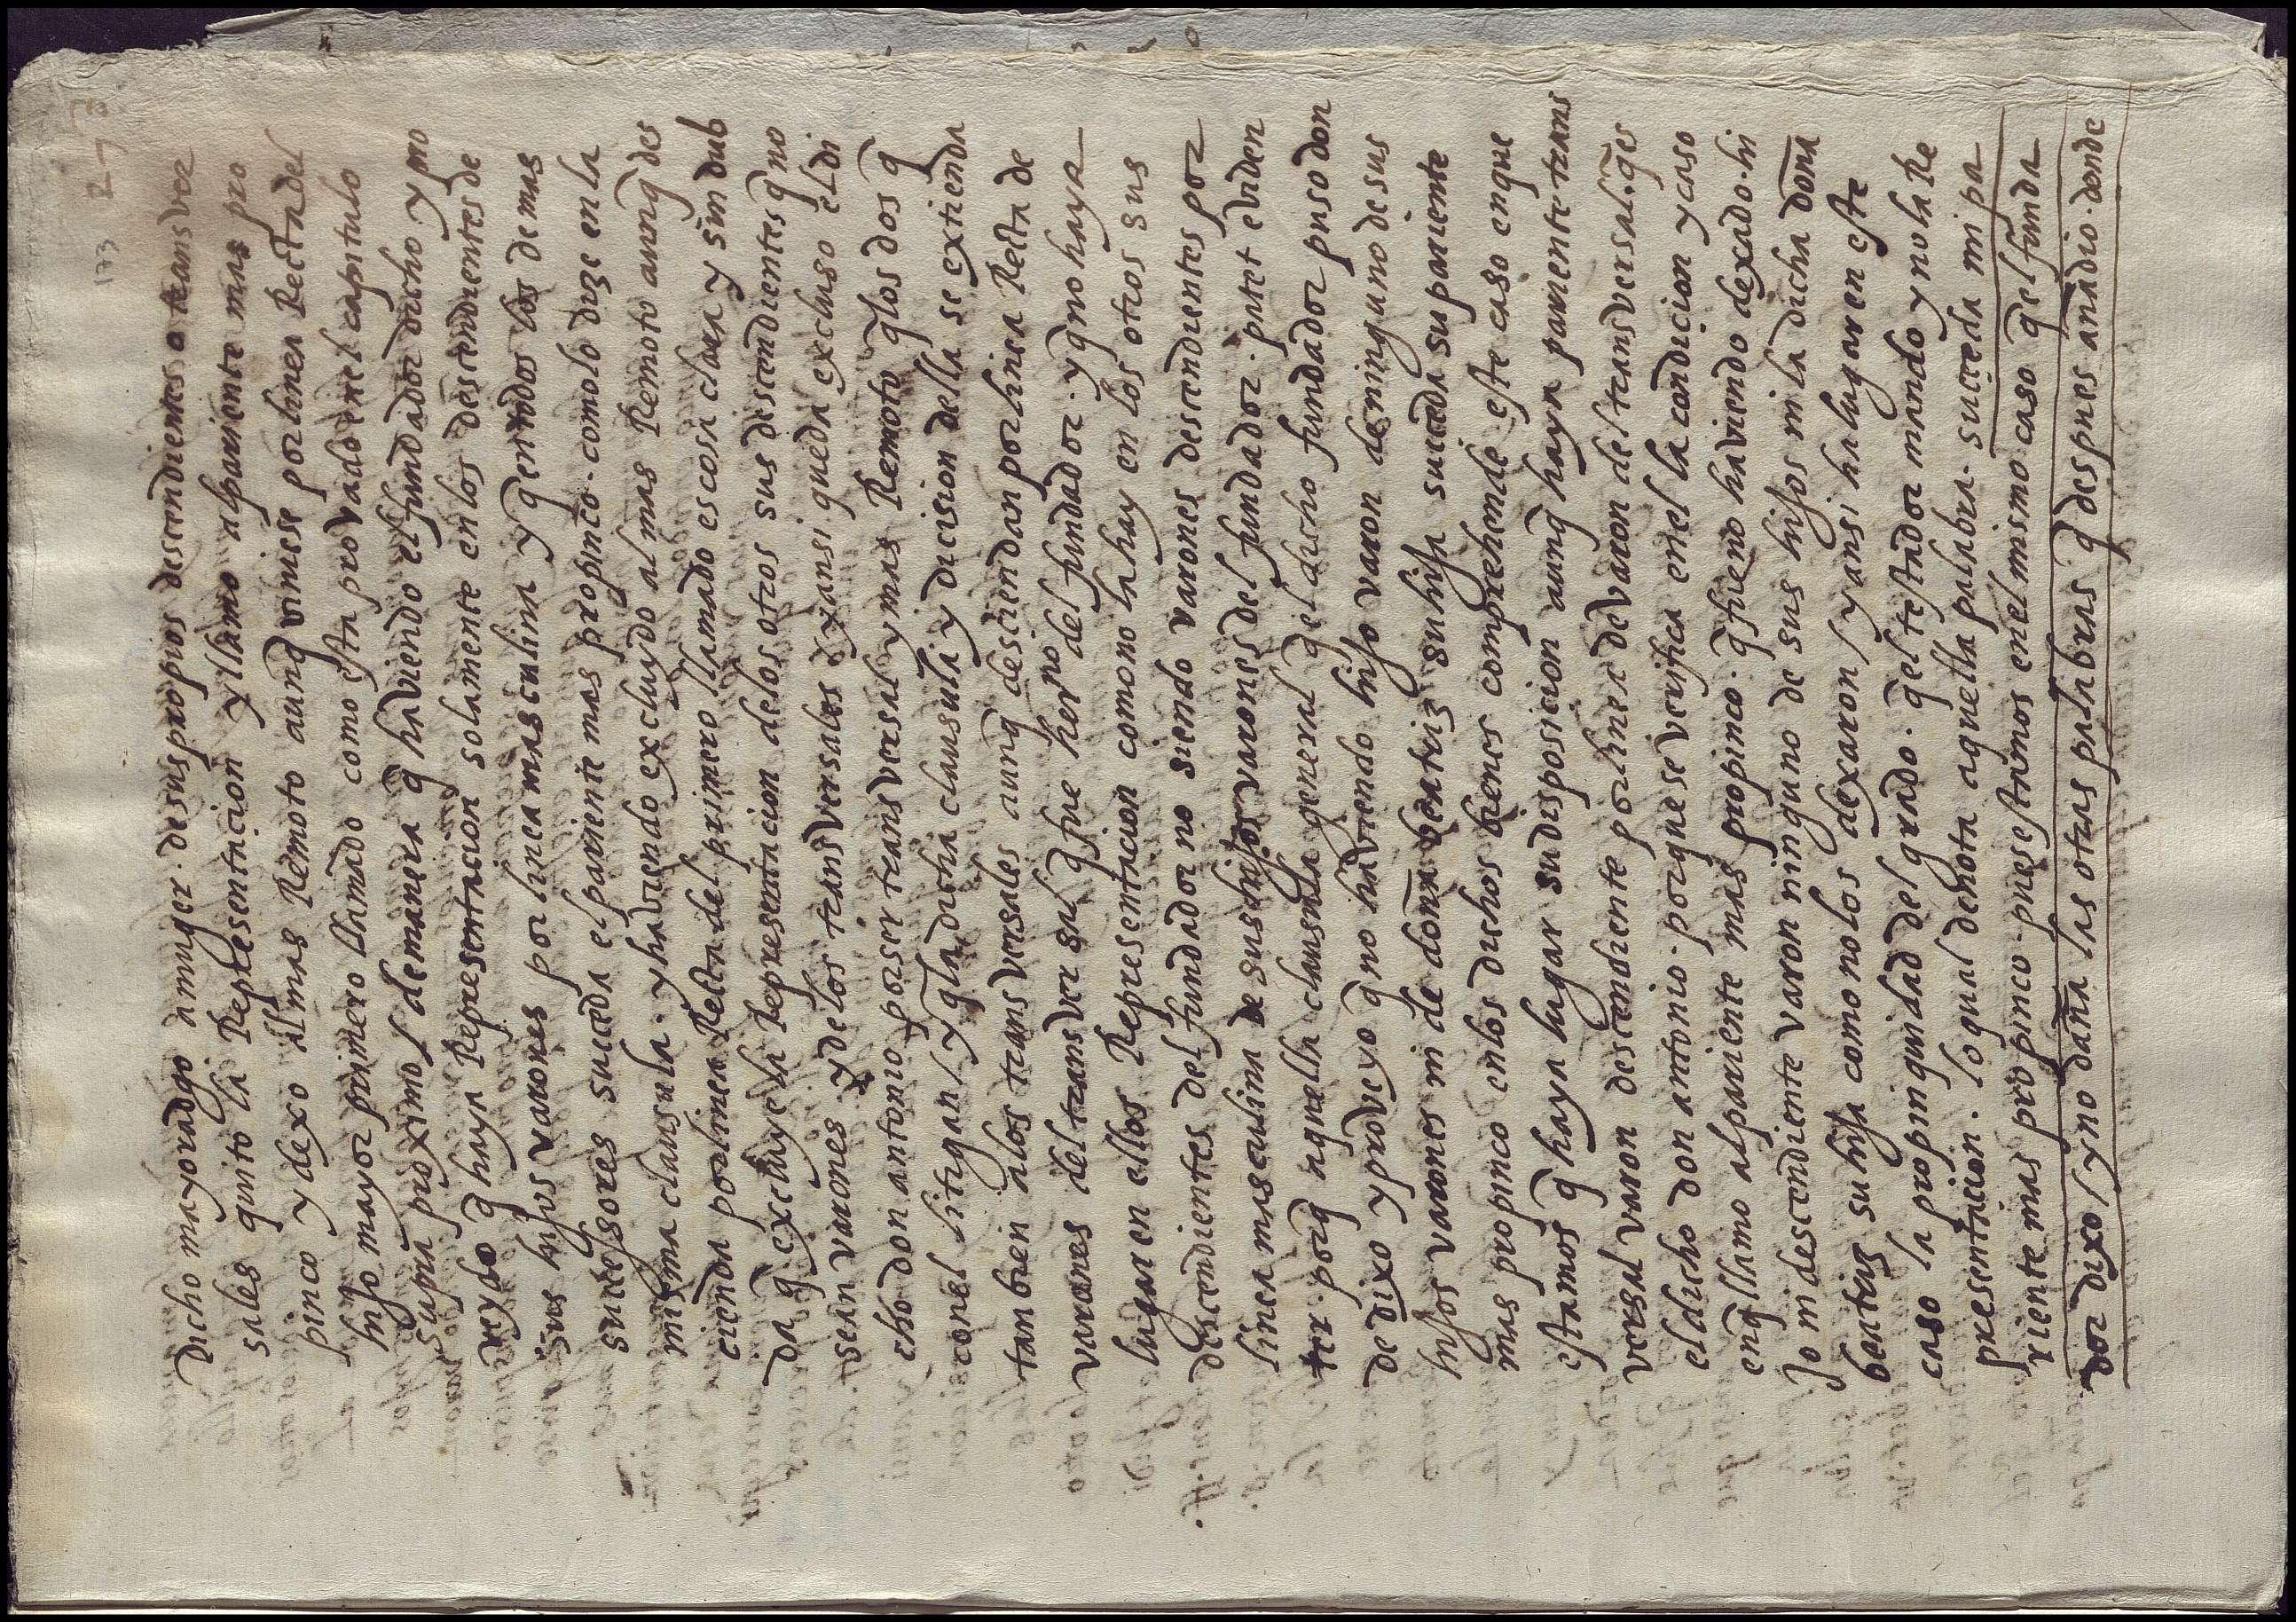 173 273
Dicho mayoradgo a muger. de sus propios descendientes o transver
sales quito la Representacion y llamo al pariente mas pro
pinco y dexo al mas Remoto aunq̃ viniese por linea Recta del
hijo mayor primero llamado como esta provado en el capitulo
supra proximo / de manera q̃ haviendo el fundador dicho y pro
veydo q̃ haya Representacion solamente en los descendientes de
sus hijos varones por linea masculina y q̃ en todos los demas
sucessores suceda el pariente mas propinco. como lo dize en la
misma clausula. y haviendo excluydo al mas Remoto aunq̃ des
cienda por linea Recta del primero llamado es cosa clara y sin dub
da q̃ excluye la Representacion de los otros sus descendientes q̃ no
sean varones y de los transversales y ansi queda excluso el di
cho don antonio por ser transversal y mas Remoto q̃ los dos q̃
con el litigan / y q̃ la dicha clausula y dicision della se extienda
tanbien a los transversales aunq̃ desciendan por linea Recta de
varones del transversal q̃ fue her^no del fundador. y q̃ no haya
lugar en ellos Representacion como no la hay en los otros sus
descendientes del fundador no siendo varones descendientes por
linea masculina de sus hijos varones del fundador. patet eviden
ter. porq̃ aquella clausula general q̃ el dicho fundador puso don
de dixo y proveyo q̃ no haviendo hijo varon de ninguno de sus
hijos varones ni de doña beatriz su hija suceda su pariente
mas propinco en los dichos bienes comprehende este caso en que
estamos q̃ haya lugar su disposicion aunq̃ haya pariente trans
versal varon descendiente por linea de varon del transversal. q̃ es
el dicho don antonio. porque se verifica en el la condicion y caso
en q̃ llamo al pariente mas propinco. q̃ fue no haviendo dexado. hi
jo ni descendiente varon ninguno de sus hijos ni la dicha doña
beatriz su hija como no los dexaron / y ansi ha lugar en este
caso la propinquidad del grado. q̃ el testador mando y no la Re
presentacion. lo qual denota aquella palabra. suceda mi pa
riente mas propinco. pues estamos en el mismo caso q̃ el funda
dor dixo / y no daña las otras palabras q̃ despues añadio. donde